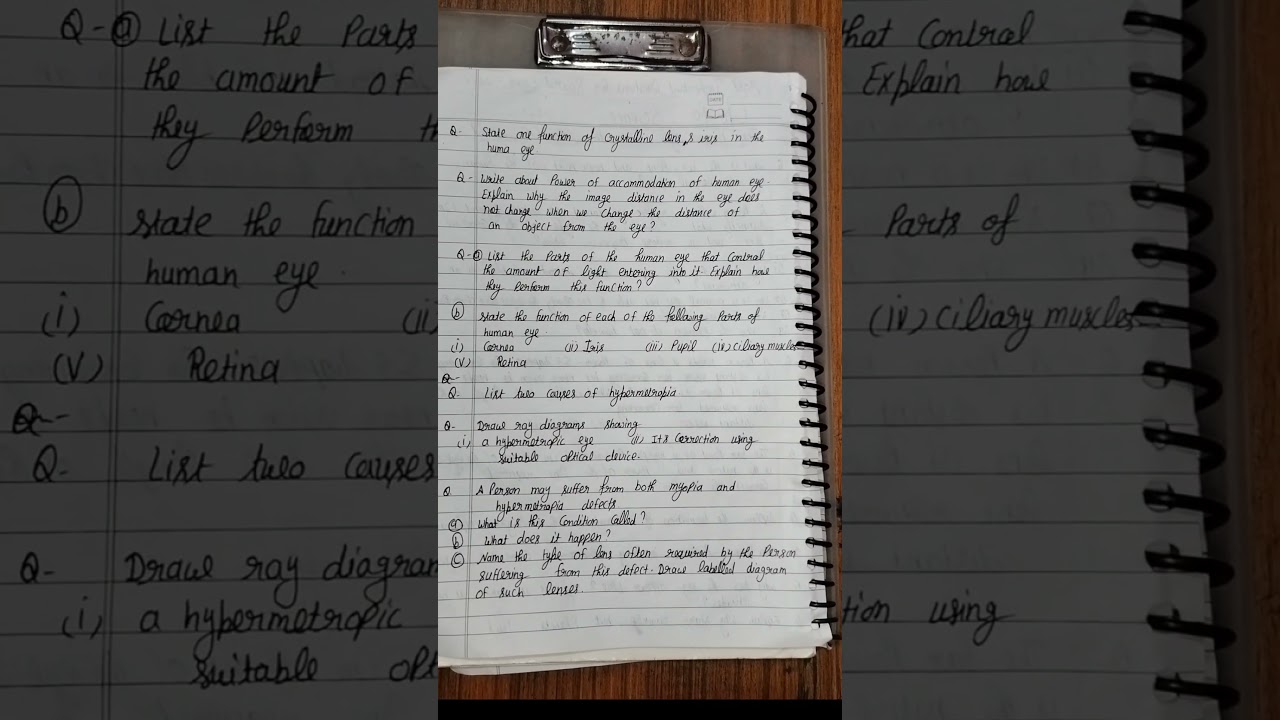 Q- State one function of Crystalline lens, & iris in the
huma eye
Q- Write about Power of accommodation of human eye.
Explain why the image distance in the eye does
not change when we change the distance of
an object from the eye?
Q- (a) List the Parts of the human eye that Control
the amount of light entering into it. Explain how
they Perform this function?
(b) State the function of each of the following Parts of
human eye.
(i) Cornea (ii) Iris (iii) Pupil (iv) Ciliary muscles
(V) Retina
Q-
Q. List two causes of hypermetropia
Q- Draw ray diagrams showing
(i) a hypermetropic eye (ii) Its Correction using
suitable optical device.
Q A Person may suffer from both myopia and
hypermetropia defects
(a) What is this Condition Called?
(b) What does it happen?
(c) Name the type of lens often required by the Person
suffering from this defect. Draw labelled diagram
of such lenses.